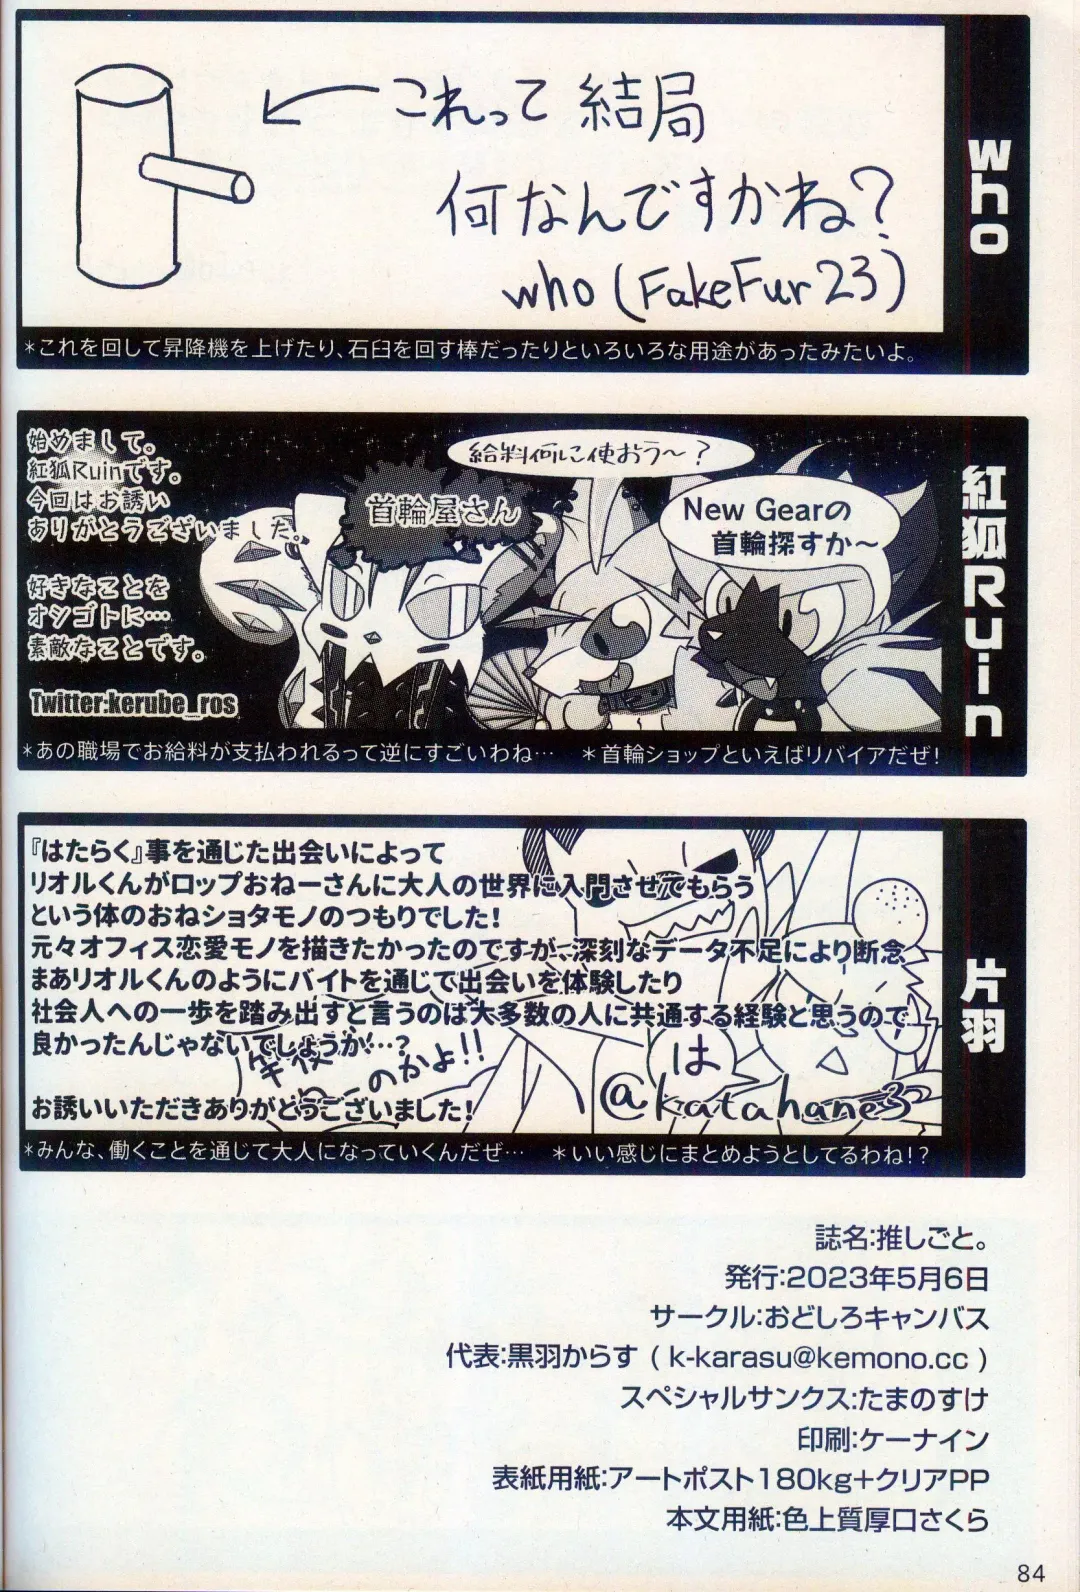 これって 結局
何なんですかね?
who (FakeFur23)
who
*これを回して昇降機を上げたり、石臼を回す棒だったりといろいろな用途があったみたいよ。
始めまして。
紅狐Ruinです。
今回はお誘い
ありがとうございました。
好きなことを
オシゴトに…
素敵なことです。
Twitter:kerube_ros
首輪屋さん
給料何に使おう〜?
New Gearの
首輪探すか〜
紅狐Ruin
*あの職場でお給料が支払われるって逆にすごいわね… *首輪ショップといえばリバイアだぜ!
『はたらく』事を通じた出会いによって
リオルくんがロップおねーさんに大人の世界に入門させてもらう
という体のおねショタモノのつもりでした!
元々オフィス恋愛モノを描きたかったのですが、深刻なデータ不足により断念
まあリオルくんのようにバイトを通じて出会いを体験したり
社会人への一歩を踏み出すと言うのは大多数の人に共通する経験と思うので
良かったんじゃないでしょうか…?
お誘いいただきありがとうございました!
のかよ!!
は
@katahane3
片羽
*みんな、働くことを通じて大人になっていくんだぜ… *いい感じにまとめようとしてるわね!?
誌名:推しごと。
発行:2023年5月6日
サークル:おどしろキャンバス
代表:黒羽からす ( k-karasu@kemono.cc )
スペシャルサンクス:たまのすけ
印刷:ケーナイン
表紙用紙:アートポスト180kg+クリアPP
本文用紙:色上質厚口さくら
84